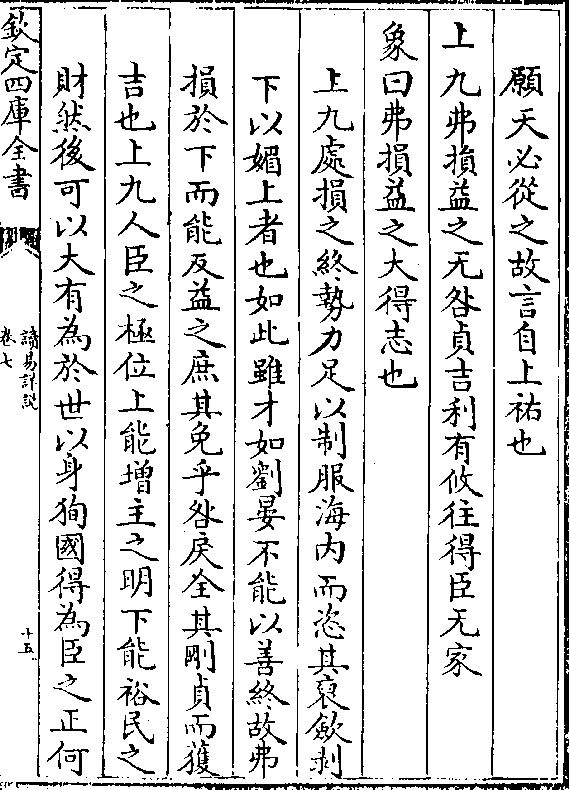 願天必從之故言自上祐也
上九弗損益之无咎貞吉利有攸往得臣无家
象曰弗損益之大得志也
上九處損之終勢力足以制服海内而恣其裒斂剥
下以媚上者也如此雖才如劉晏不能以善終故弗
損於下而能反益之庶其免乎咎戾全其剛貞而獲
吉也上九人臣之極位上能增主之明下能裕民之
財然後可以大有為於世以身狥國得為臣之正何
欽定四庫全書
讀易詳説
卷七
十五